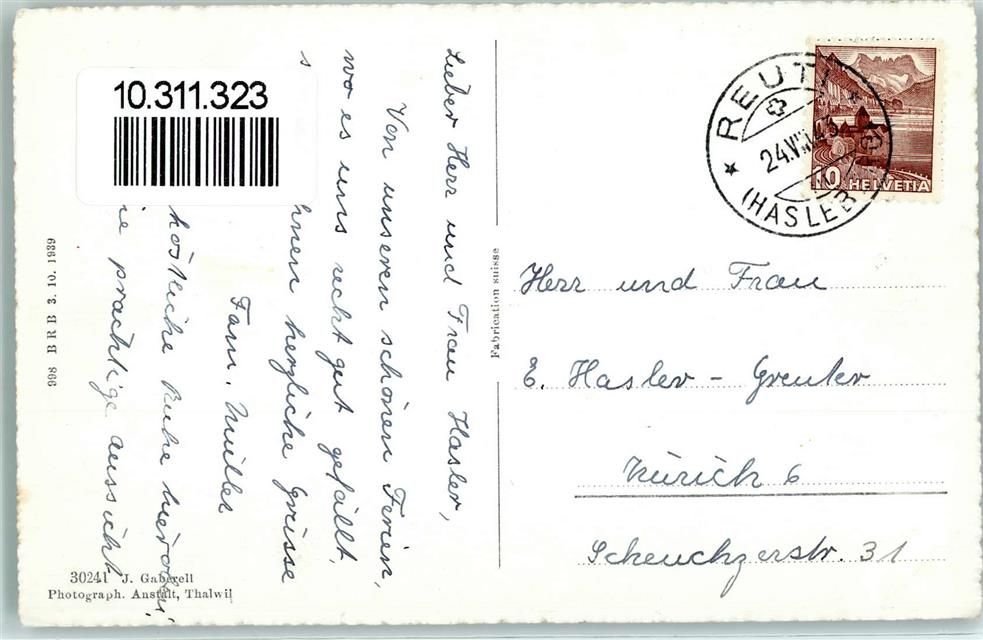 10.311.323
Lieber Herr und Frau Hasler,
Von unseren schönen Ferien,
wo es uns recht gut gefällt,
s
hnen herzliche Grüsse
Fam. Müller
köstliche Ruhe hieroben!
ie prächtige Aussicht
998 BRB 3. 10. 1939
30241 J. Gaberell
Photograph. Anstalt, Thalwil
Fabrication suisse
REUTI
24.VII.43
(HASLEB
10 HELVETIA
Herr und Frau
E. Hasler - Greuter
Zürich 6
Scheuchzerstr. 31